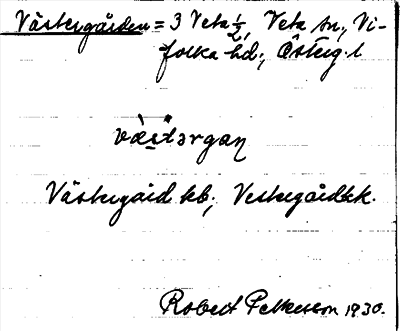 Västergården = 3 Veta ½, Veta sn., Vi-
folka hd., Österg. l
väs̱tərgaɳ
Västergård kb., Vestergård kk.
Robert Pettersson 1930.